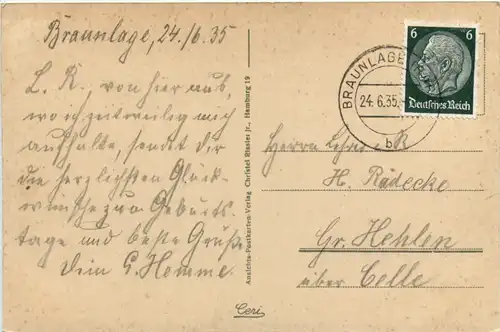 Braunlage, 24./6.35
L. R. von hier aus,
wo ich zeitweilig mich
aufhalte, sendet dir
die herzlichsten Glück-
wünsche zum Geburts-
tage und beste Grüße
Dein G. Hemme.
Ansichts-Postkarten-Verlag Christel Rissler jr., Hamburg 19
Ceri
BRAUNLAGE
24.6.35.
b
6
6
Deutsches Reich
Herrn Lehrer i. R
H. Rädecke
Gr. Hehlen
über Celle